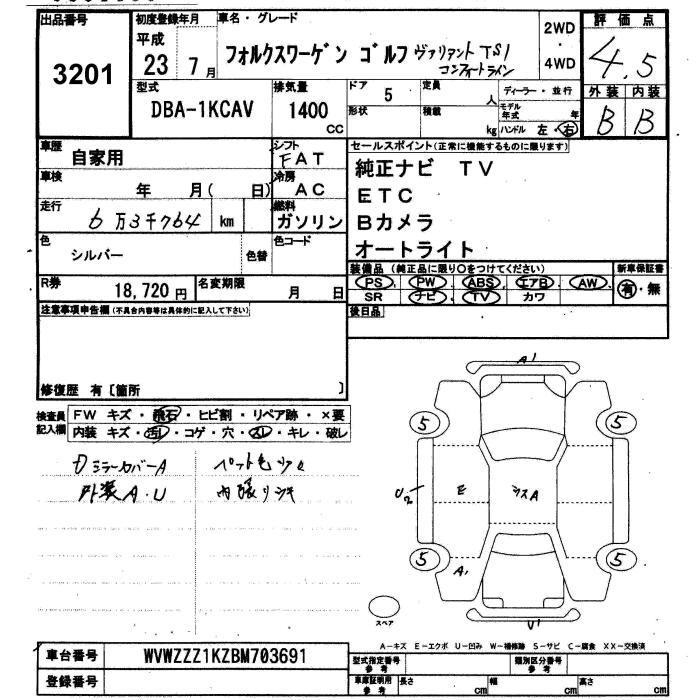 出品番号
3201
初度登録年月
平成
23年 7月
車名・グレード
フォルクスワーゲン ゴルフ ヴァリアント TSI
コンフォートライン
2WD
・
4WD
評価点
4.5
外装 内装
B B
型式
DBA-1KCAV
排気量
1400
cc
ドア
5
定員
人
形状
積載
kg
ディーラー・並行
モデル年式 年
ハンドル 左・右
車歴
自家用
シフト
FAT
車検
年 月( 日)
冷房
AC
走行
6万3千764 km
燃料
ガソリン
色
シルバー
色替
色コード
R券
18,720円
名変期限
月 日
セールスポイント(正常に機能するものに限ります)
純正ナビ TV
ETC
Bカメラ
オートライト
装備品(純正品に限り○をつけてください)
PS PW ABS エアB AW
SR ナビ TV カワ
新車保証書
有・無
後日品
注意事項申告欄(不具合内容等は具体的に記入して下さい)
修復歴 有〔箇所 〕
検査員
記入欄
FW キズ・飛石・ヒビ割・リペア跡・×要
内装 キズ・汚レ・コゲ・穴・スレ・キレ・破レ
ミラーカバーA
外装A・U
A1
5 5
U2
E
A
5 5
A1
U1
スペア
A-キズ E-エクボ U-凹み W-補修跡 S-サビ C-腐食 XX-交換済
車台番号
WVWZZZ1KZBM703691
登録番号
型式指定番号
参考
類別区分番号
参考
車庫証明用
参考
長さ cm
幅 cm
高さ cm